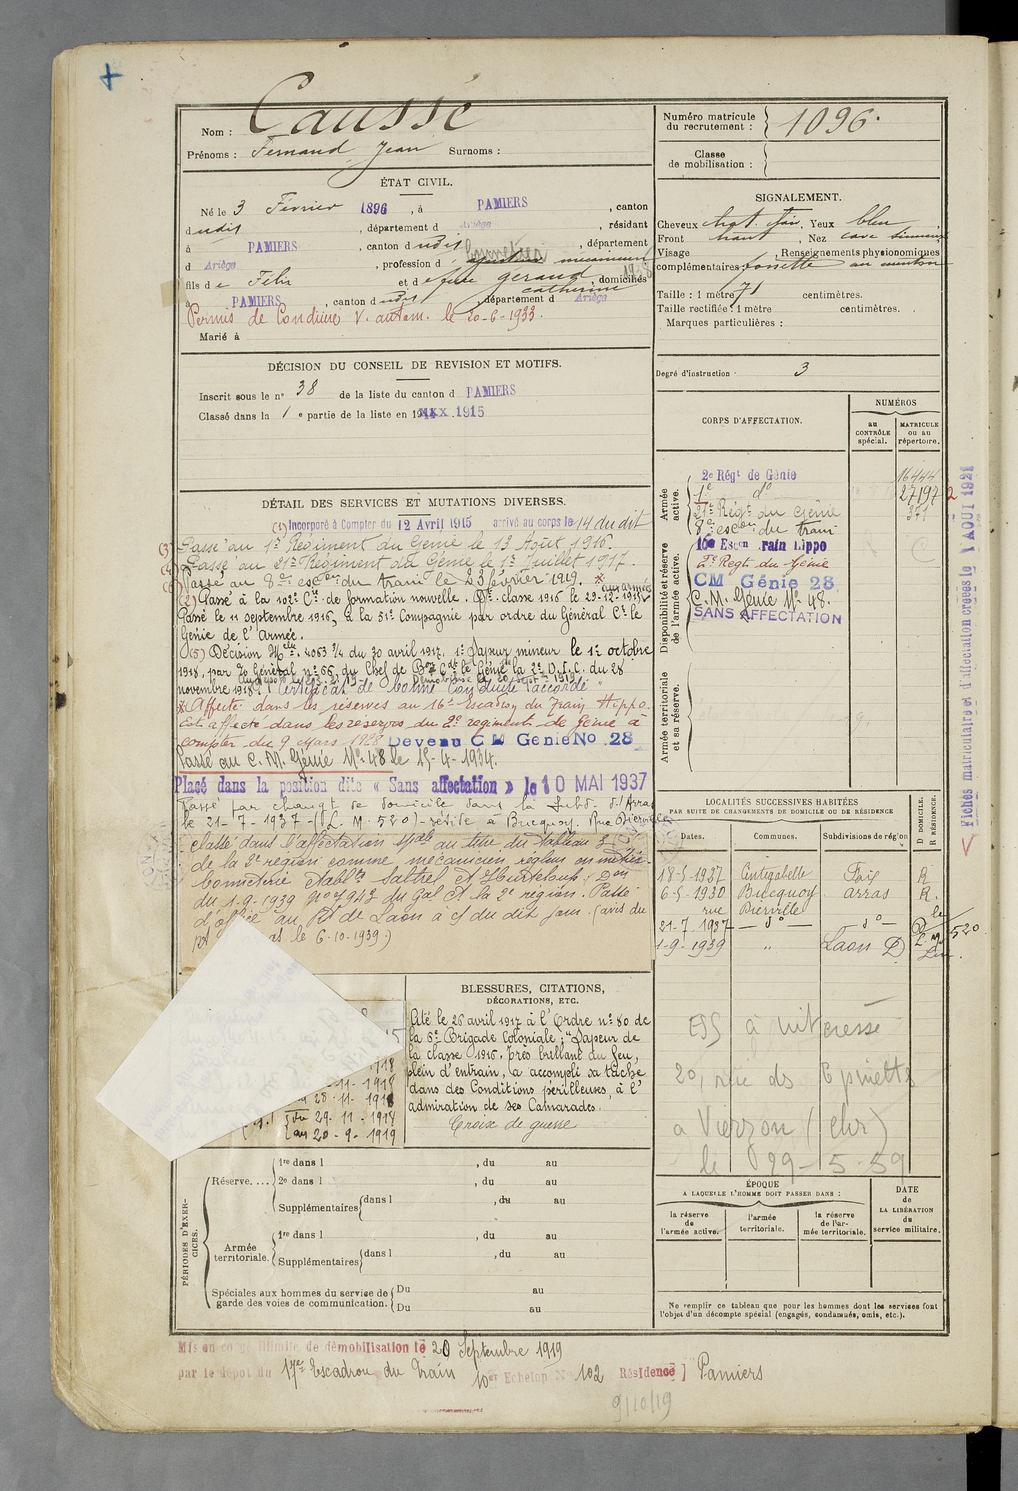 Nom : Caussé
Prénoms : Fernand Jean Surnoms :
Numéro matricule du recrutement : 1096
Classe de mobilisation :
ÉTAT CIVIL.
Né le 3 Février 1896, à PAMIERS, canton
dudit, département d Ariège, résidant
à PAMIERS, canton dudit, département
d Ariège, profession d mécanicien
fils de Félix et de feue Géraud Catherine, domiciliés
à PAMIERS, canton dudit, département d Ariège
Permis de Conduire V. autom. le 20-6-1933.
Marié à
SIGNALEMENT.
Cheveux chat. foir, Yeux bleu
Front haut, Nez cave sinueux
Visage , Renseignements physionomiques
complémentaires fossette au menton
Taille : 1 mètre 71 centimètres.
Taille rectifiée : 1 mètre centimètres.
Marques particulières :
Degré d'instruction 3
DÉCISION DU CONSEIL DE REVISION ET MOTIFS.
Inscrit sous le n° 38 de la liste du canton d PAMIERS
Classé dans la 1e partie de la liste en 1915
CORPS D'AFFECTATION.
NUMÉROS
au CONTRÔLE spécial.
MATRICULE ou au répertoire.
Armée active.
2e Régt de Génie 16444
1e do 27197
21e Régt du Génie 371
8e escon du train
Disponibilité et réserve de l'armée active.
16e Escon Train Hippo
2e Regt du Génie
CM Génie 28
C. M. Génie No 48.
SANS AFFECTATION
Armée territoriale et sa réserve.
Fiches matriculaire et d'affectation créées le 1 AOUT 1921
DÉTAIL DES SERVICES ET MUTATIONS DIVERSES.
(1) Incorporé à Compter du 12 Avril 1915 arrivé au corps le 14 du dit
(3) Passé au 1er Régiment du Génie le 13 Août 1916
Passé au 21e Régiment du Génie le 1er Juillet 1917.
Passé au 8e escon du train le 23 février 1919. *
(2) Passé à la 102e Cie de formation nouvelle. Bon classe 1916 le 29-12-1915 aux armées
Passé le 11 septembre 1916, à la 51e Compagnie par ordre du Général Ct le
Génie de l'Armée.
(5) Décision Melle 4063 3/4 du 30 avril 1917. 1er Sapeur mineur le 1er octobre
1918, par Do Général no 66 du Chef de Bon Ct le Génie la 2e D.I.C. du 28
novembre 1918. "Certificat de bonne Conduite accordé"
* Affecté dans les réserves au 16e escadron du Train Hippo.
Est affecté dans les réserves du 2e régiment de Génie à
compter du 9 mars 1928 Devenu CM Génie No 28
Passé au C. M. Génie No 48 le 15-4-1934.
Placé dans la position dite « Sans affectation » le 10 MAI 1937
Passé par changt de domicile dans la Subd. d'Arras
le 21-7-1937 (L. M. 520) - réside à Bucquoy. Rue Bierville
Classé dans l'affectation spale au titre du tableau 3
de la 2e région comme mécanicien régleur en métier
bonneterie Etablts Sattrel et Hurteloup; Don
du 1-9-1939 no 7943 du Gal Ct la 2e région. Passé
d'office au Rt de Laon à c/ du dit jour. (avis du
as le 6-10-1939.)
LOCALITÉS SUCCESSIVES HABITÉES
PAR SUITE DE CHANGEMENTS DE DOMICILE OU DE RÉSIDENCE
Dates. Communes. Subdivisions de région D DOMICILE. R RÉSIDENCE.
18-5-1927 Cintegabelle Foix R
6-5-1930 Bucquoy Arras R.
rue Bierville
21-7-1937 — do — — do — D le L. M. 520
1-9-1939 " Laon D
ESS à intéressé
20, rue des Epinettes
à Vierzon (Cher)
le 29-5-59
BLESSURES, CITATIONS,
DÉCORATIONS, ETC.
Cité le 26 avril 1917 à l'Ordre no 80 de
la 6e Brigade Coloniale; "Sapeur de
la classe 1916. Très brillant au feu,
plein d'entrain, a accompli sa tâche
dans des Conditions périlleuses, à l'
admiration de ses Camarades.
Croix de guerre
1918
-11-1918
au 28-11-1918
du 29-11-1918
au 20-9-1919
PÉRIODES D'EXERCICES.
Réserve....
1re dans l , du au
2e dans l , du au
Supplémentaires dans l , du au
Armée territoriale.
1re dans l , du au
Supplémentaires dans l , du au
Spéciales aux hommes du service de garde des voies de communication.
Du au
Du au
ÉPOQUE
A LAQUELLE L'HOMME DOIT PASSER DANS :
la réserve de l'armée active.
l'armée territoriale.
la réserve de l'armée territoriale.
DATE DE LA LIBÉRATION du service militaire.
Ne remplir ce tableau que pour les hommes dont les services font
l'objet d'un décompte spécial (engagés, condamnés, omis, etc.).
Mis en congé illimité de démobilisation le 20 Septembre 1919
par le dépôt du 17e Escadron du Train 10e Echelon No 102 Résidence Pamiers
9/10/19